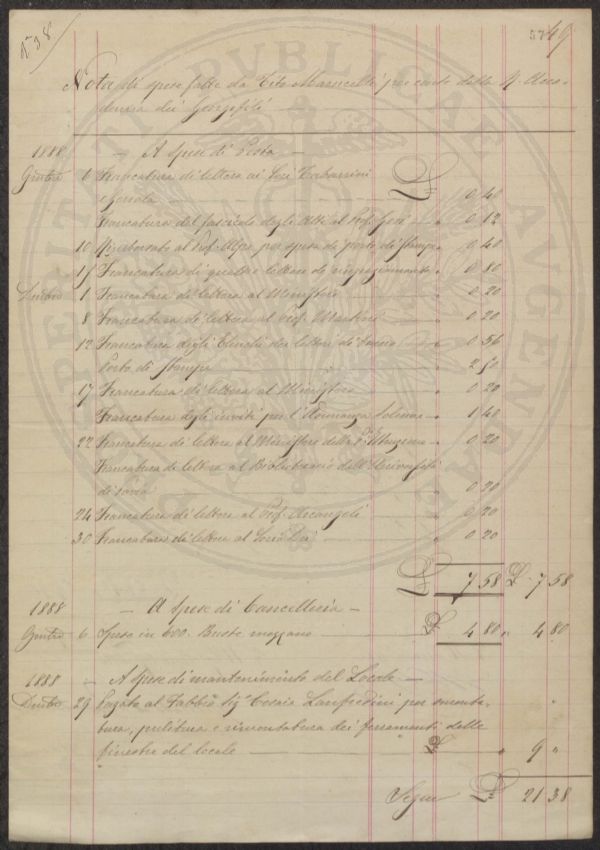 N° 38
5749
Nota di spese fatte da Tito Marucelli per conto della R. Acca-
demia dei Georgofili
PROSPERITATI PUBLICAE AUGENDAE
1888 — A Spese di Posta —
6 Francatura di lettera ai Soci Tabarrini
e £ 0,40
Francatura del fascicolo degli Atti al Prof. 0,12
10 Rimborsato al Prof. per spese di porto di stampe 0,40
15 Francatura di quattro lettere di ringraziamento 0,80
1 Francatura di lettera al Ministero 0,20
8 Francatura di lettera al Prof. 0,20
12 Francatura degli Elenchi dei lettori di 0,56
Porto di Stampe 2,50
17 Francatura di lettera al Ministero 0,20
Francatura degli inviti per l'Adunanza Solenne 1,40
22 Francatura di lettera al Ministero della P. Istruzione 0,20
Francatura di lettera al Bibliotecario dell'Università
di 0,20
24 Francatura di lettera al Prof. Arcangeli 0,20
30 Francatura di lettera al Socio 0,20
£ 7 58 £ 7 58
1888 — A Spese di Cancelleria —
6 Spese in 600 Buste £ 4 80 „ 4 80
1888 — A Spese di mantenimento del Locale —
29 Pagato al Fabbro Sig. Cesare Lanfredini per smonta-
tura, pulitura e rimontatura dei ferramenti delle
finestre del locale £ „ 9 „
Segue £ 21 38